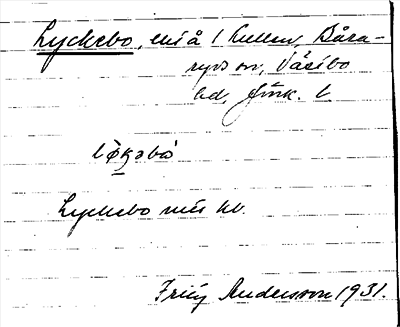 Lyckebo, ens å 1 Kullen, Båra-
ryds sn, Västbo
hd, Jönk. l
løkəbo
Lyckebo mtr kb.
Fritz Andersson 1931.